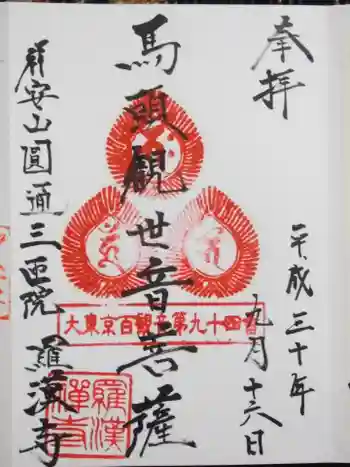 奉拝
平成三十年
九月十六日
馬頭観世音菩薩
大東京百観音第九十四番
安山圓通三匝院
羅漢寺
羅漢
禅寺